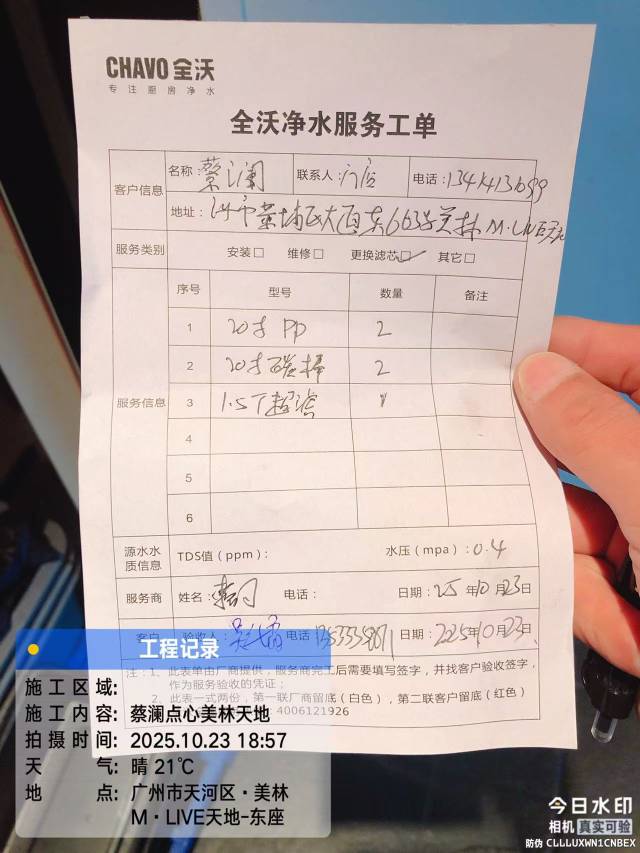 CHAVO 全沃
专注厨房净水
全沃净水服务工单
客户信息
名称：蔡澜 联系人： 电话：
地址：
服务类别 安装□ 维修□ 更换滤芯☑ 其它□
服务信息
序号 型号 数量 备注
1 20寸 PP 2
2 20寸碳棒 2
3 1.5T超滤
4
5
6
源水水质信息 TDS值（ppm）： 水压（mpa）：0.4
服务商 姓名： 电话： 日期：25年10月23日
客户 验收人： 电话 日期：2225年10月23日
注：1、此表单由厂商提供，服务商完工后需要填写签字，并找客户验收签字，
作为服务验收的凭证；
2、此表一式两份，第一联厂商留底（白色），第二联客户留底（红色）
4006121926
工程记录
施工区域:
施工内容: 蔡澜点心美林天地
拍摄时间: 2025.10.23 18:57
天气: 晴 21℃
地点: 广州市天河区·美林
M·LIVE天地-东座
今日水印
相机 真实可验
防伪 CLLLUXWN1CNBEX